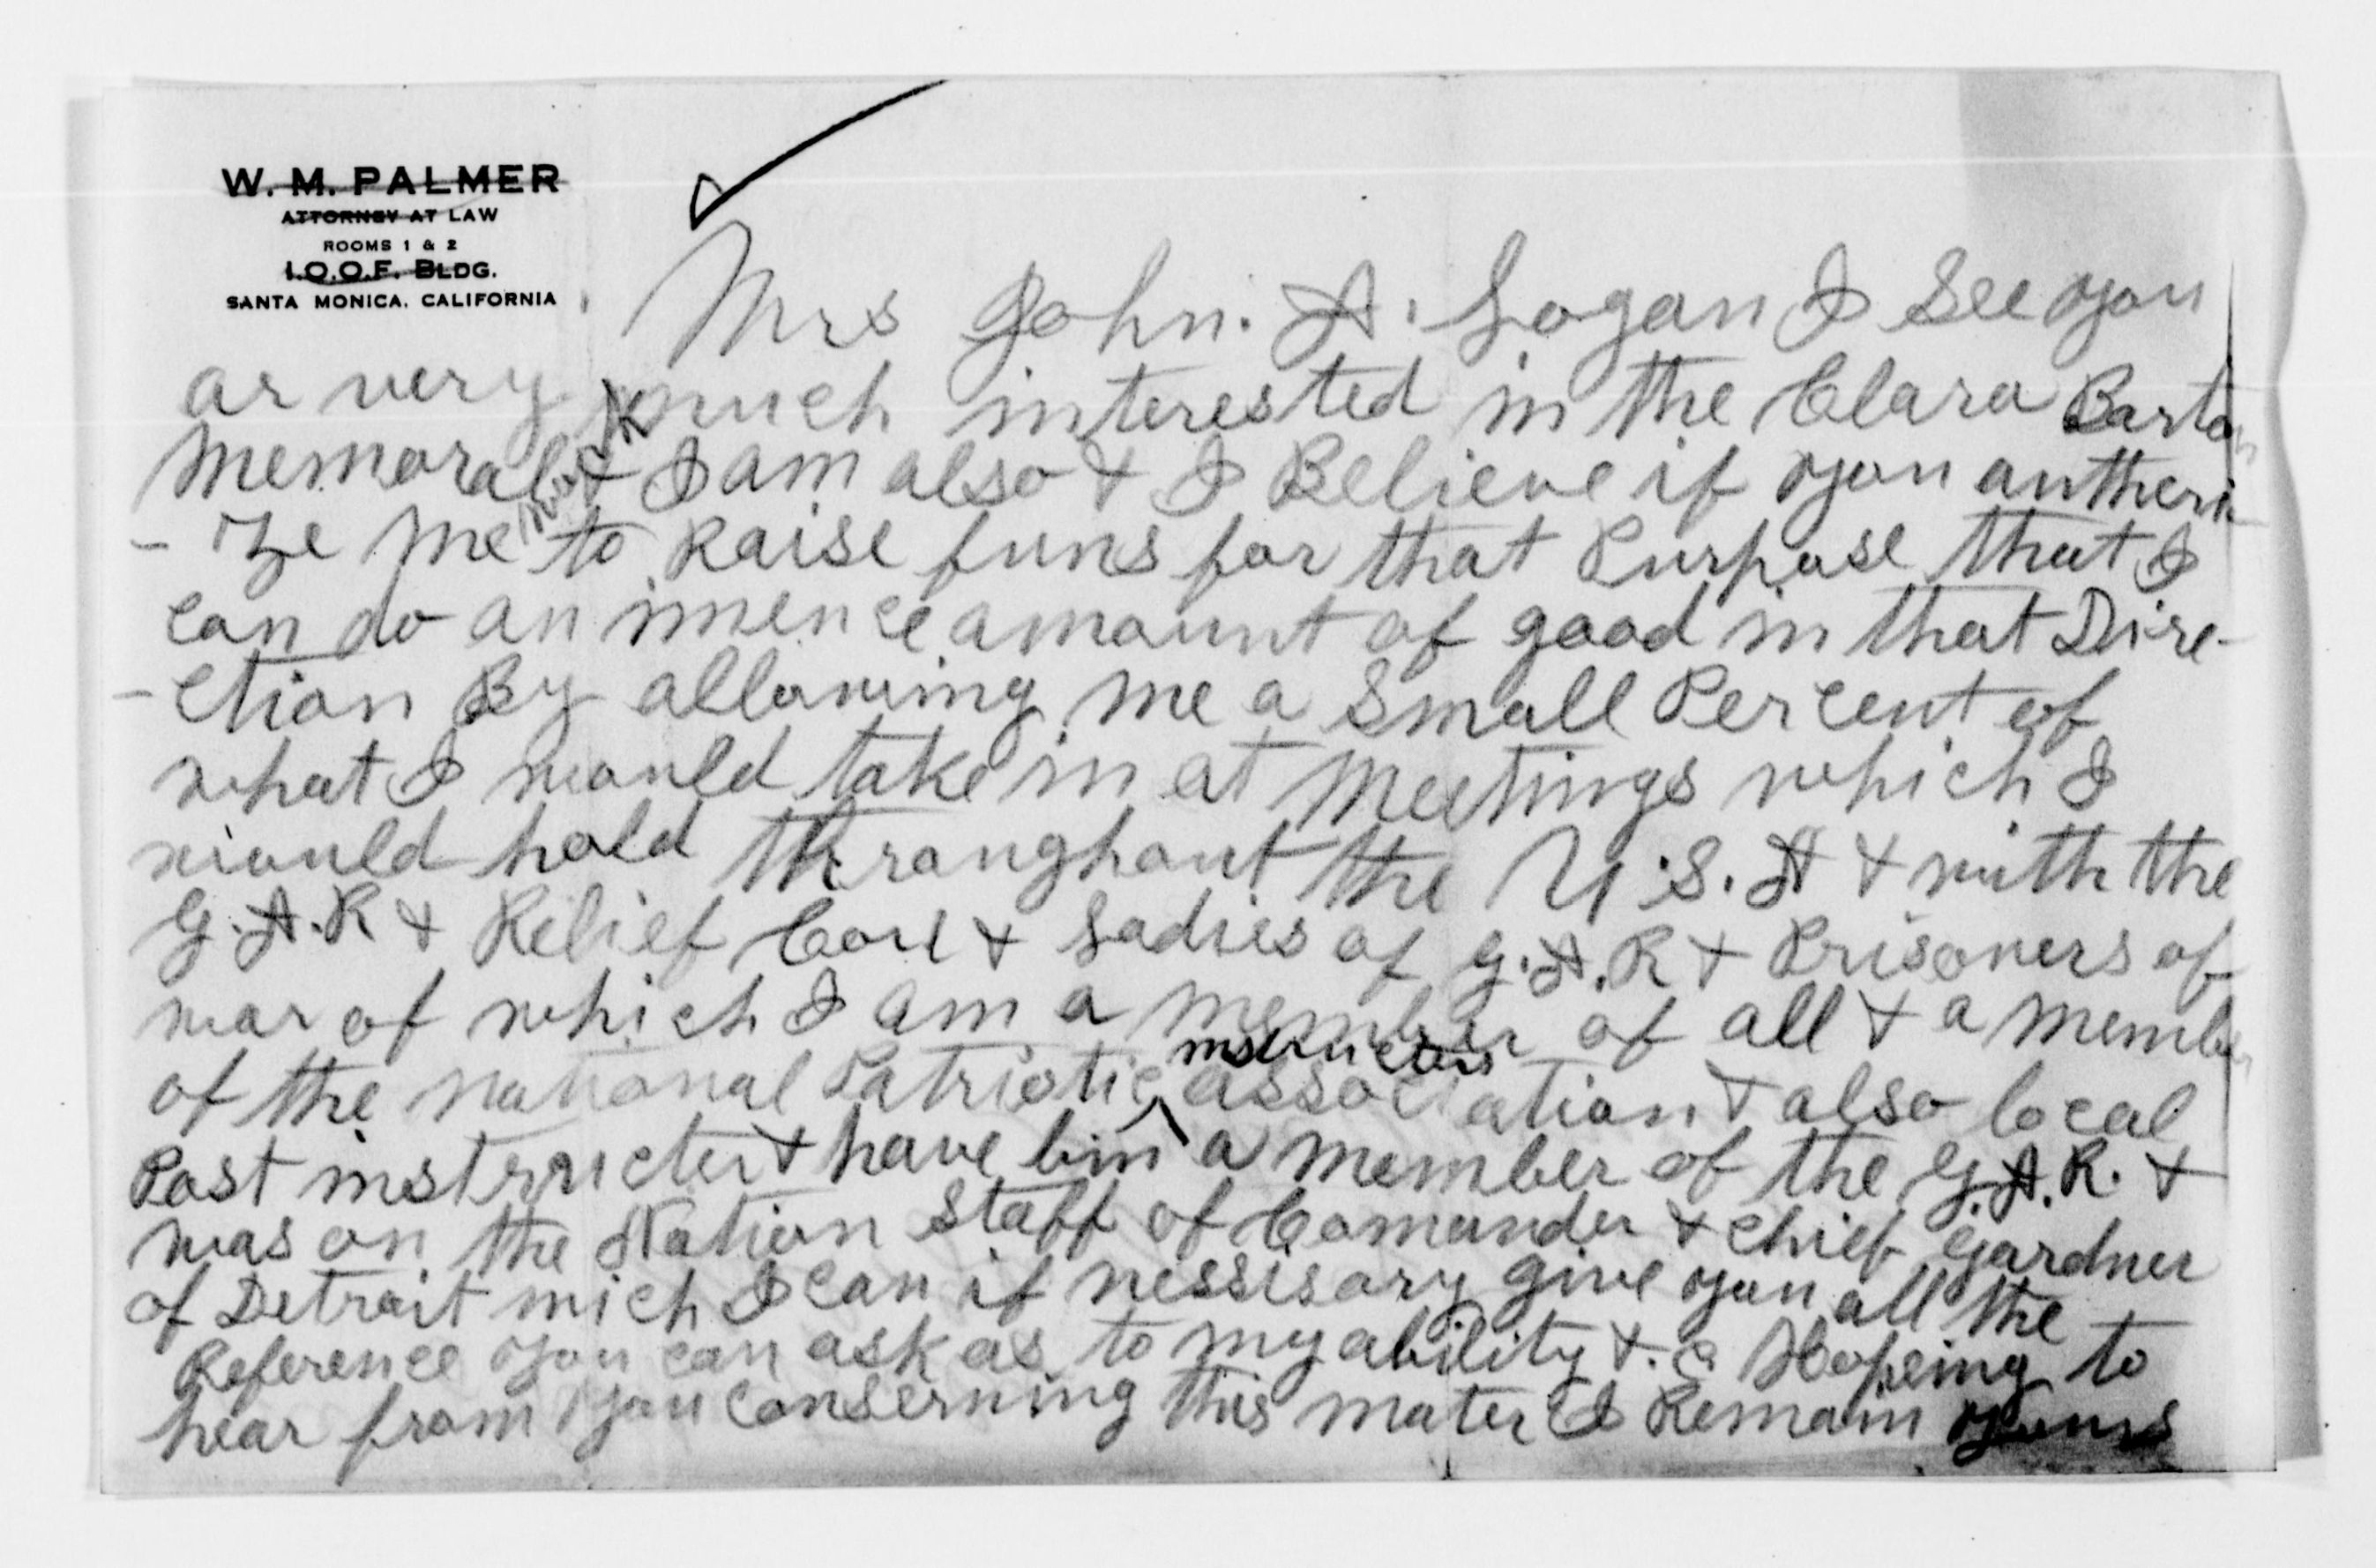 W. M. PALMER
ATTORNEY AT LAW
ROOMS 1 & 2
I.O.O.F. BLDG.
SANTA MONICA, CALIFORNIA
Mrs John. A. Logan I See you
ar very much interested in the Clara Barton
Memoral & I am also & I Believe if you autheri-
- ze me to Raise funs for that Purpose that I
can do an imence amount of good in that Dire-
- ction By allowing me a Small Percent of
what I would take in at Meetings which I
would hold throughout the U.S.A & with the
G.A.R & Relief Cor & Ladies of G.A.R & Prisoners of
war of which I am a member of all & a member
instructors
of the national Patriotic association & also local
Post instructer & have bin a member of the G.A.R. &
was on the Nation Staff of Comander & chief Gardner
of Detroit mich I can if nessisary give you all the
Reference you can ask as to my ability &.c Hopeing to
hear from you conserning this mater I Remain yours